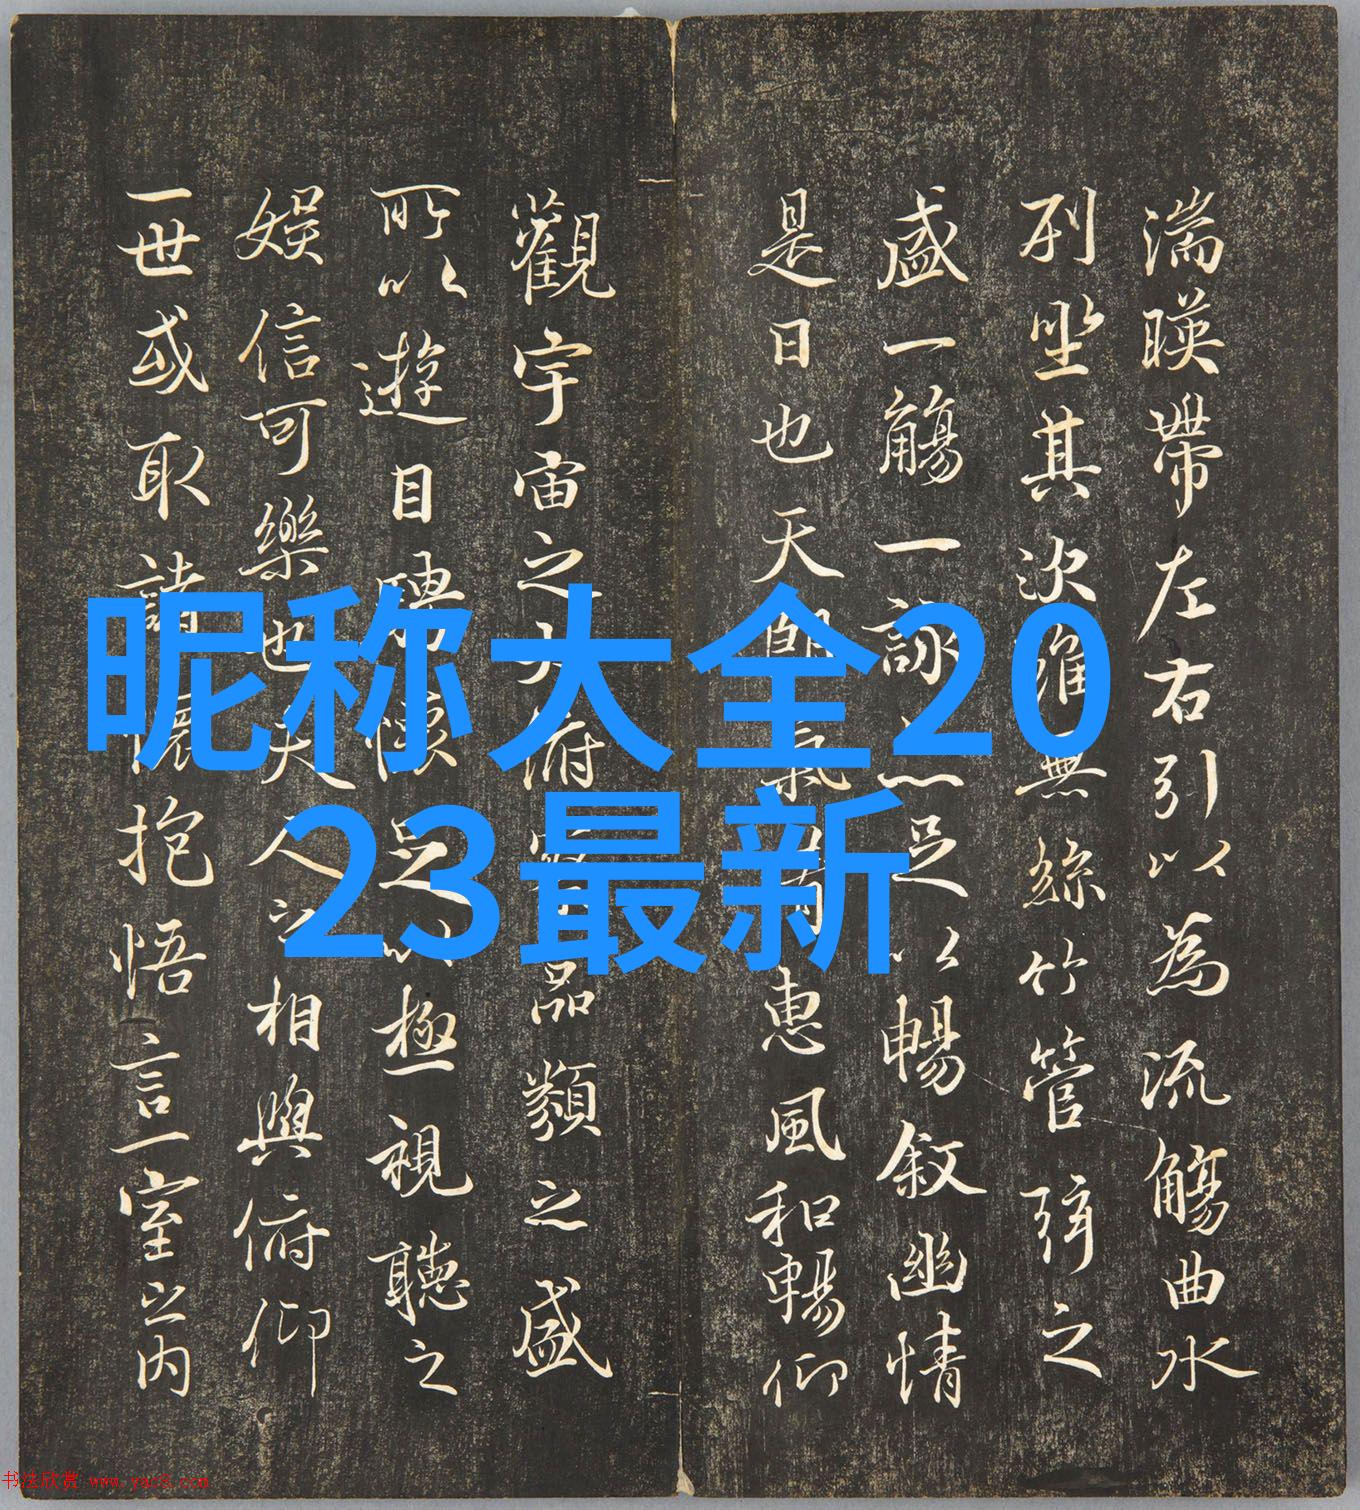 湍暎帶左右引以為流觴曲水
列坐其次雖無絲竹管弦之
盛一觴一詠亦足以暢敘幽情
是日也天朗氣清惠風和暢仰
觀宇宙之大俯察品類之盛
所以遊目騁懷足以極視聽之
娛信可樂也夫人之相與俯仰
一世或取諸懷抱悟言一室之内
昵称大全20
23最新
书法欣赏 www.yac8.com